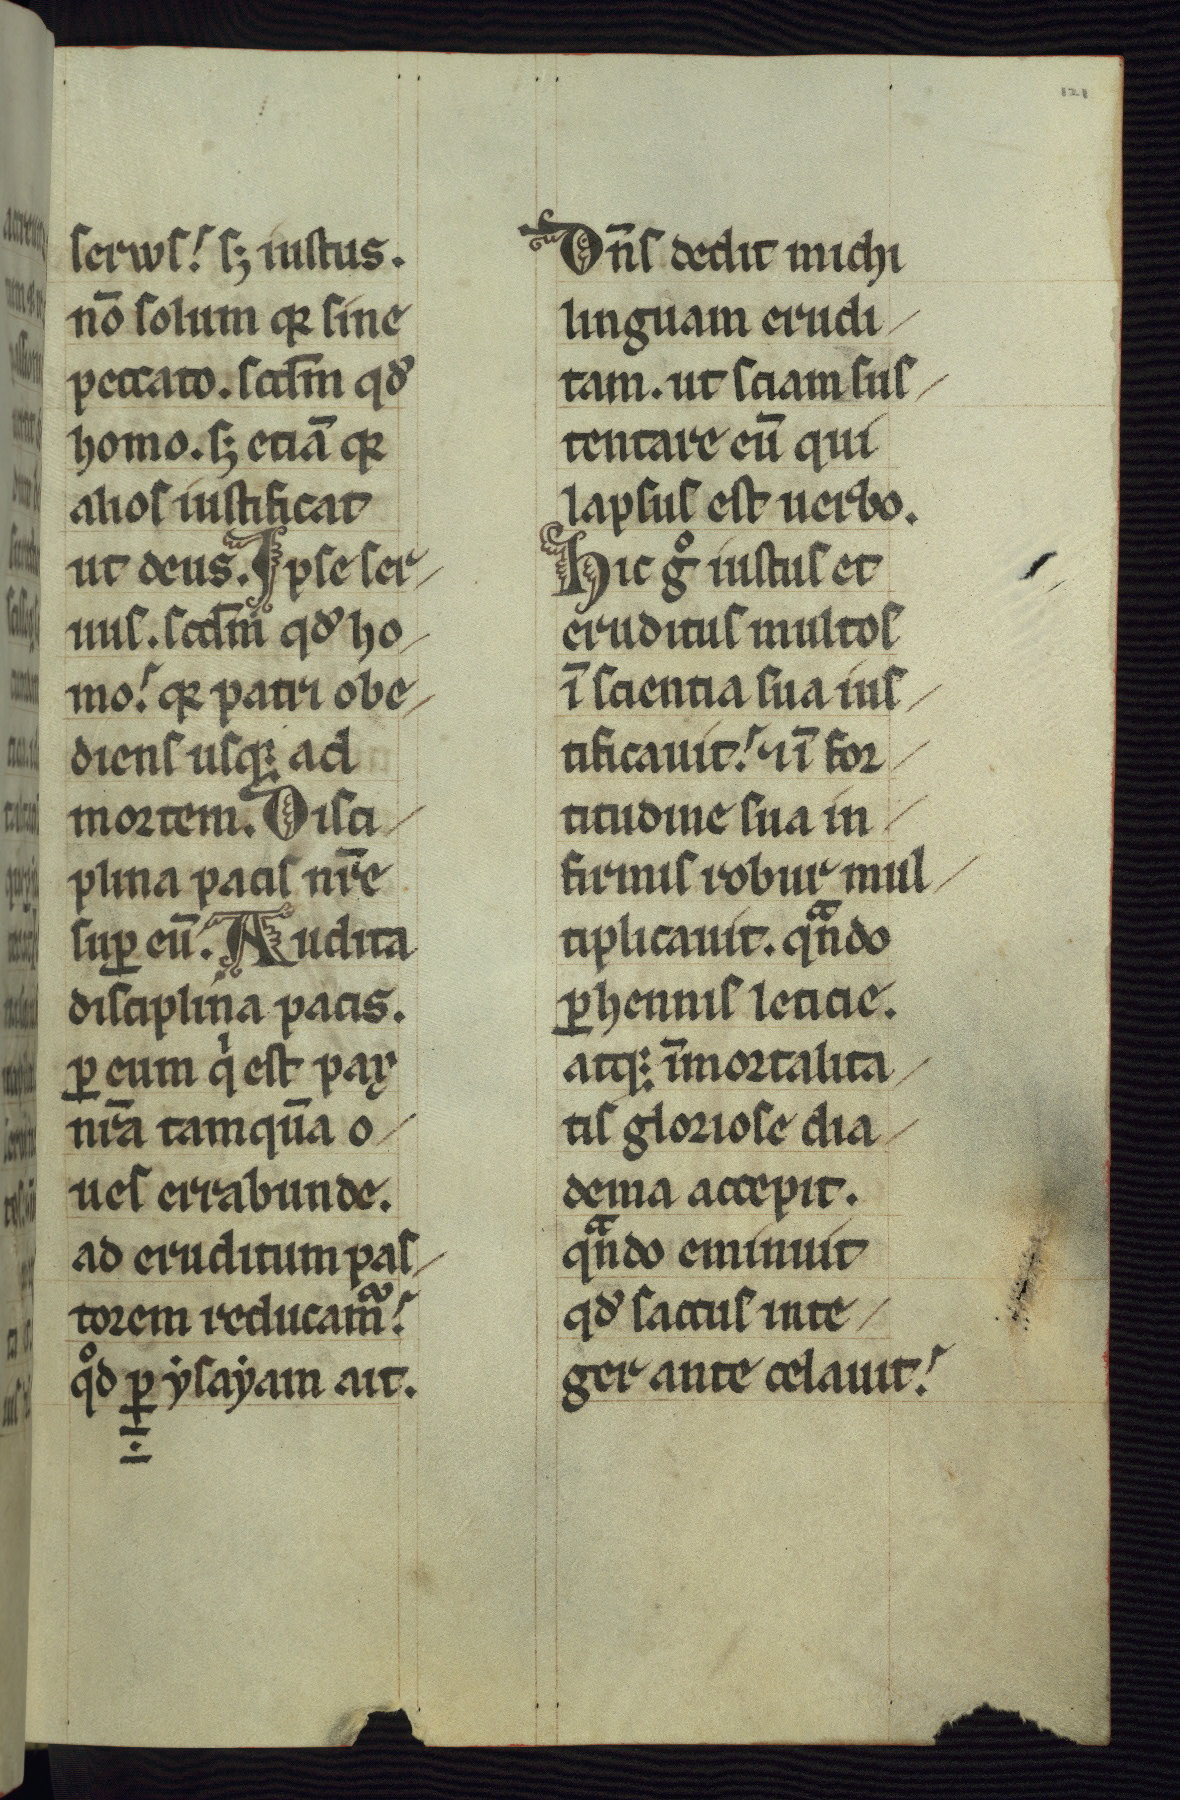 121
ſerwſ! ſꝫ iuſtus.
nō ſolum qꝛ ſine
peccato. ſcd̄m qd̓
homo. ſꝫ etiā qꝛ
alioſ iuſtificat
ut deus. Ipſe ſer/
uuſ. ſcd̄m qd̓ ho/
mo! qꝛ patri obe/
dienſ uſqꝫ ad
moꝛtem. Diſci/
plina paciſ nr̄e
ſuꝑ eū. Audita
diſciplina pacis.
ꝑ eum qͥ eſt pax
nr̄a tamqūa o/
ueſ errabunde.
ad eruditum paſ/
toꝛem reducam᷒!
qͦd ꝑ ẏſaẏam ait.
Dn̄ſ dedit michi
linguam erudi/
tam. ut ſciam ſuſ/
tentare eū qui
lapſuſ eſt uerbo.
Hic gͦ iuſtuſ et
erudituſ multoſ
ī ſcientia ſua iuſ/
tificauit! ⁊ ī foꝛ/
titudine ſua in/
firmiſ robur mul/
tiplicauit. qͣndo
ꝑhenniſ leticie.
atqꝫ īmoꝛtalita/
tiſ gloꝛioſe dia/
dema accepit.
qͣndo eminuit
qd̓ ſaccuſ inte/
ger ante celauit!